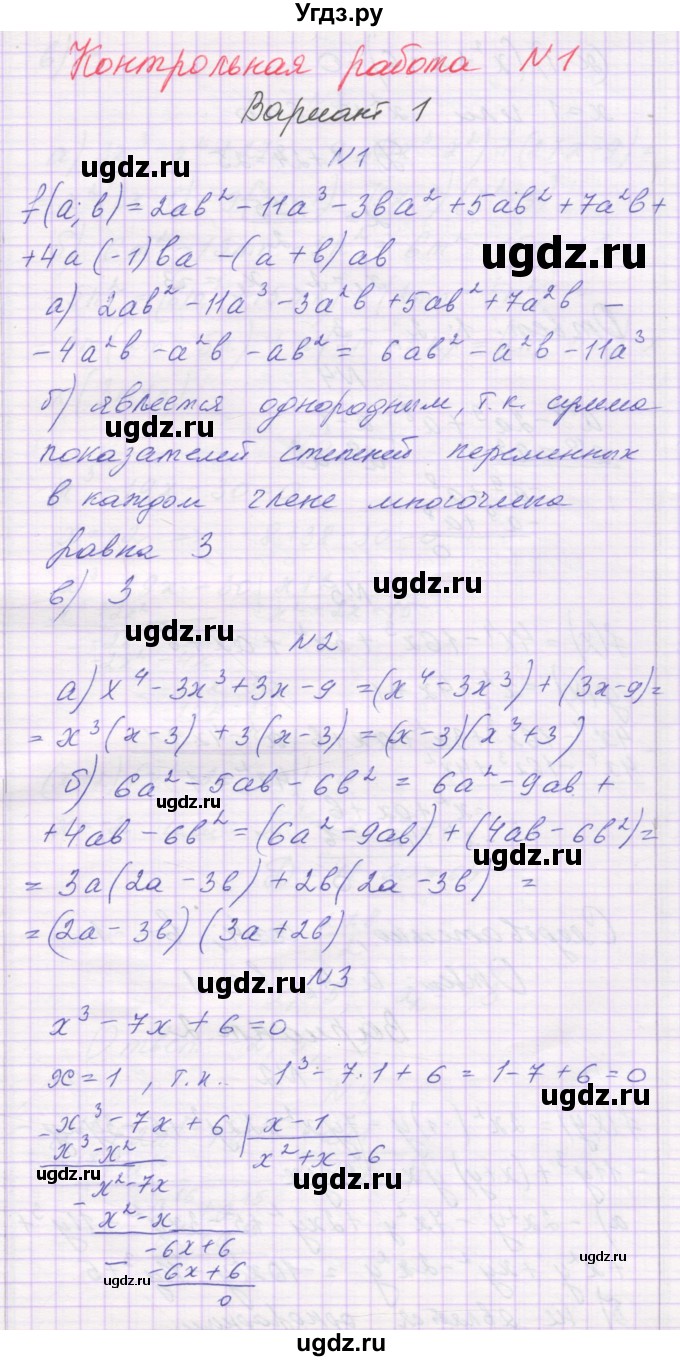 Угдз.ру
Контрольная работа №1
Вариант 1
ugdz.ru
№1
f(a;b)=2ab²-11a³-3ba²+5ab²+7a²b+
ugdz.ru
+4a(-1)ba-(a+b)ab
а) 2ab²-11a³-3a²b+5ab²+7a²b-
-4a²b-a²b-ab²= 6ab²-a²b-11a³
б) является однородным, т.к. сумма
ugdz.ru
показателей степеней переменных
в каждом члене многочлена
равна 3
ugdz.ru
в) 3
ugdz.ru
№2
а) x⁴-3x³+3x-9=(x⁴-3x³)+(3x-9)=
=x³(x-3)+3(x-3)=(x-3)(x³+3)
б) 6a²-5ab-6b²=6a²-9ab+
ugdz.ru
+4ab-6b²=(6a²-9ab)+(4ab-6b²)=
ugdz.ru
=3a(2a-3b)+2b(2a-3b)=
=(2a-3b)(3a+2b)
ugdz.ru №3
x³-7x+6=0
x=1, т.к. 1³-7·1+6=1-7+6=0
ugdz.ru
-x³-7x+6 | x-1
x³-x² x²+x-6
ugdz.ru
-x²-7x
ugdz.ru
x²-x
--6x+6
-6x+6
ugdz.ru
ugdz.ru
0
ugdz.ru